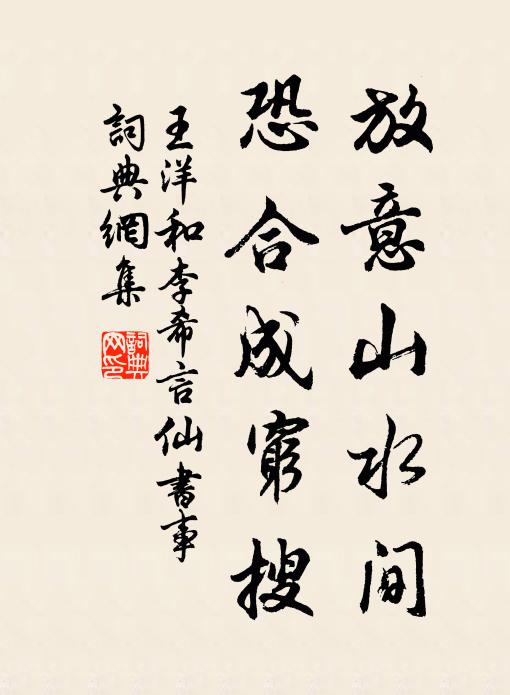 放意山水间
恐合成窮搜
王洋和李希言仙書事
詞典網集
詞典网印